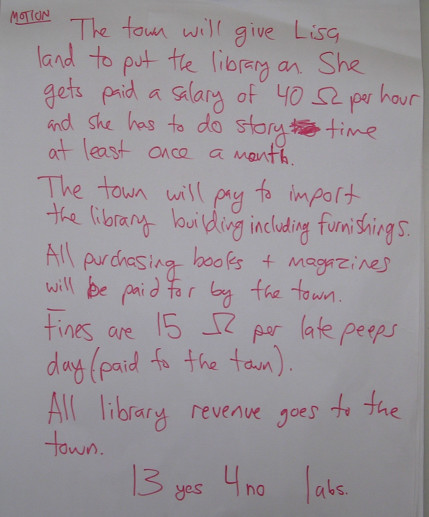 MOTION
The town will give Lisa
land to put the library on. She
gets paid a salary of 40 Ω per hour
and she has to do story time
at least once a month.
The town will pay to import
the library building including furnishings.
All purchasing books + magazines
will be paid for by the town.
Fines are 15 Ω per late peeps
day (paid to the town).
All library revenue goes to the
town.
13 yes 4 no 1 abs.